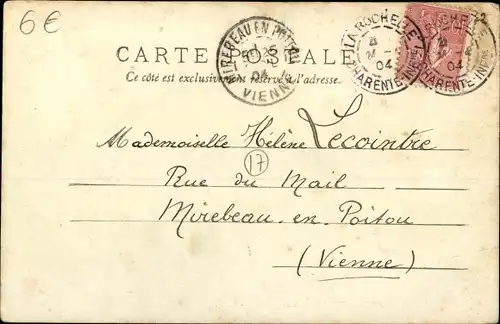 6€
CARTE POSTALE
Ce côté est exclusivement réservé à l'adresse.
MIREBEAU EN POITOU
04
VIENNE
LA ROCHELLE
04
CHARENTE-INFRE
LA ROCHELLE
04
CHARENTE-INFRE
Mademoiselle Hélène Lecointre
17
Rue du Mail
Mirebeau-en-Poitou
(Vienne)